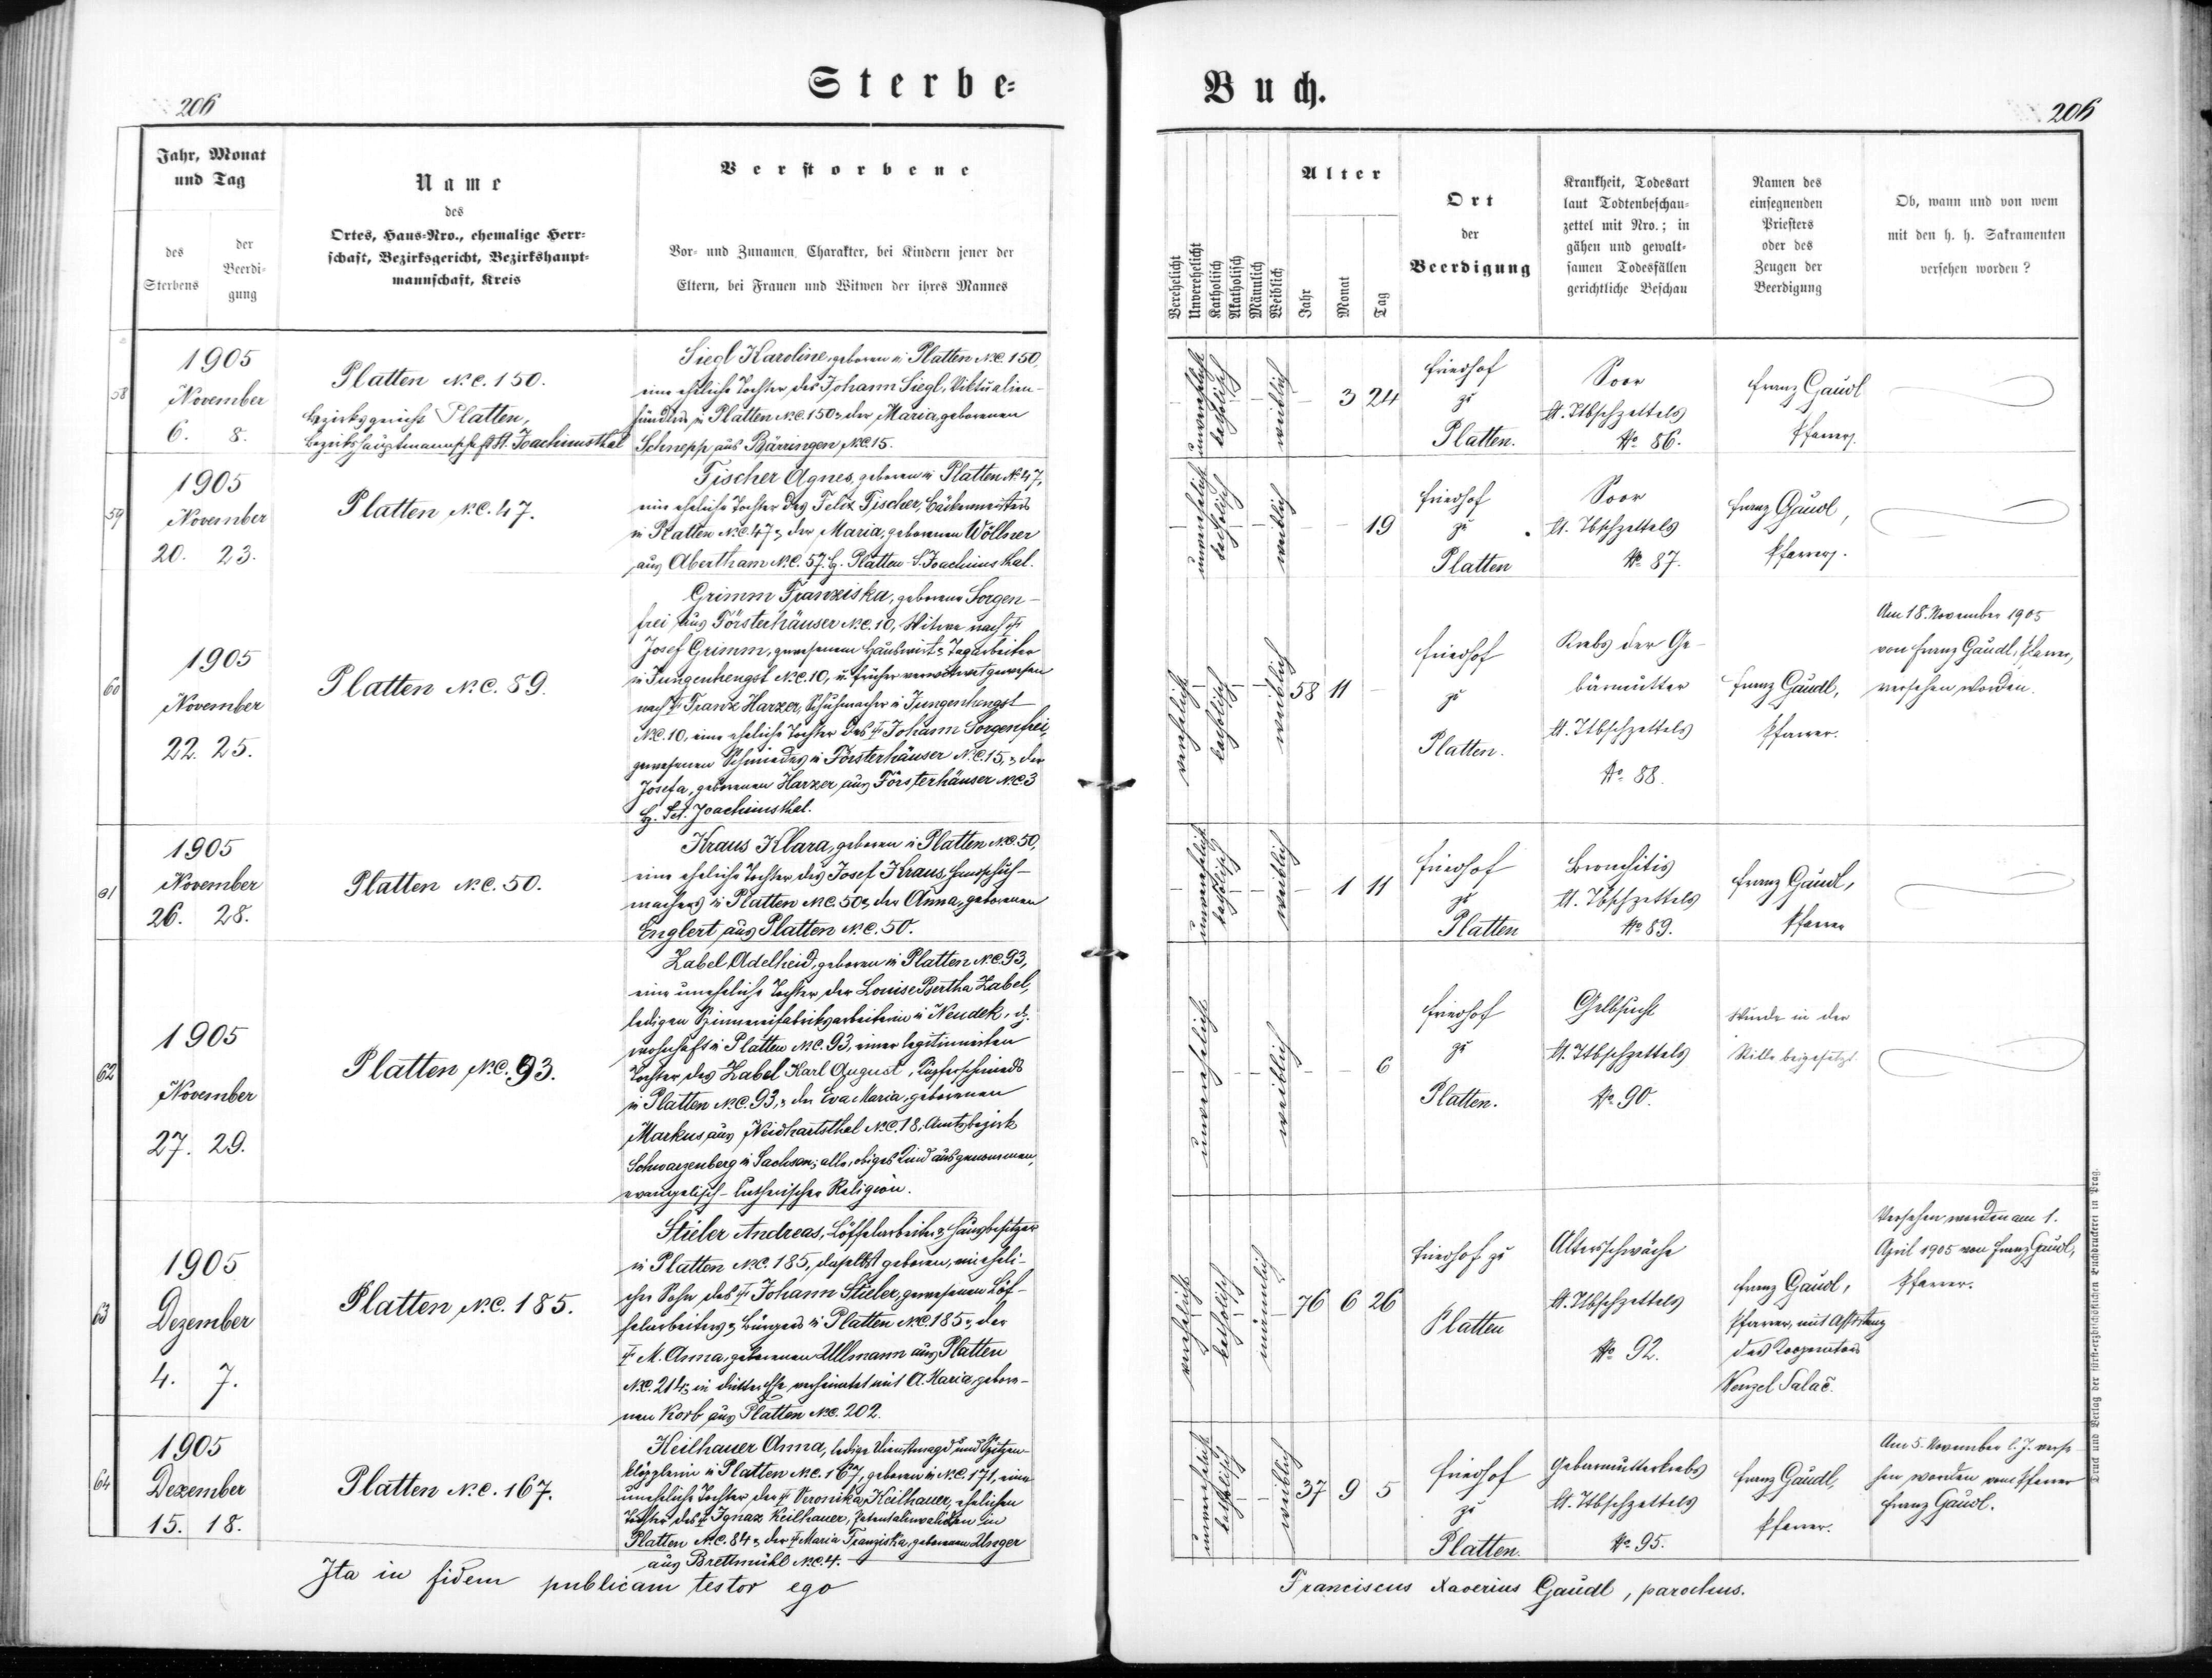 Sterbe=
206
Jahr, Monat
und Tag
des
Sterbens
der
Beerdi=
gung
Name
des
Ortes, Haus=Nro., ehemalige Herr=
schaft, Bezirksgericht, Bezirkshaupt=
mannschaft, Kreis
Verstorbene
Vor= und Zunamen, Charakter, bei Kindern jener der
Eltern, bei Frauen und Witwen der ihres Mannes
58
1905
November
6. 8.
Platten N.C. 150.
Bezirksgericht Platten,
Bezirkshauptmannschaft St. Joachimsthal
Siegl Karoline, geboren in Platten N.C. 150,
eine eheliche Tochter des Johann Siegl, Viktualien-
händlers in Platten N.C. 150 & der Maria, geborenen
Schnepp aus Bärringen N.C. 15.
59
1905
November
20. 23.
Platten N.C. 47.
Fischer Agnes, geboren in Platten N. 47,
eine eheliche Tochter des Felix Fischer, Bäckermeisters
in Platten N.C. 47 & der Maria, geborenen Wöllner
aus Abertham N.C. 57. B. Platten - S. Joachimsthal.
60
1905
November
22. 25.
Platten N.C. 89.
Grimm Franziska, geborene Sorgen-
frei aus Försterhäuser N.C. 10, Witwe nach †
Josef Grimm, gewesenem Hauswirt & Tagarbeiter
in Jungenhengst N.C. 10, u. früher verwitwet gewesen
nach † Franz Harzer, Schuhmacher in Jungenhengst
N.C. 10, eine eheliche Tochter des † Johann Sorgenfrei,
gewesenen Schmiedes in Försterhäuser N.C. 15, & der
Josefa, geborenen Harzer aus Försterhäuser N.C. 3
B. Sct. Joachimsthal.
61
1905
November
26. 28.
Platten N.C. 50.
Kraus Klara, geboren in Platten N.C. 50,
eine eheliche Tochter des Josef Kraus, Handschuh-
machers in Platten N.C. 50 & der Anna, geborenen
Englert aus Platten N.C. 50.
62
1905
November
27. 29.
Platten N.C. 93.
Zabel Adelheid, geboren in Platten N.C. 93,
eine uneheliche Tochter der Louise Bertha Zabel,
ledigen Spinnereifabriksarbeiterin in Neudek, dz.
wohnhaft in Platten N.C. 93, einer legitimierten
Tochter des Zabel Karl August, Kupferschmieds
in Platten N.C. 93, & der Eva Maria, geborenen
Markus aus Neidhartsthal N.C. 18, Amtsbezirk
Schwarzenberg in Sachsen; alle, obiges Kind ausgenommen,
evangelisch-lutherischer Religion.
63
1905
Dezember
4. 7.
Platten N.C. 185.
Stieler Andreas, Löffelarbeiter & Hausbesitzer
in Platten N.C. 185, daselbst geboren, ein eheli-
cher Sohn des † Johann Stieler, gewesenen Löf-
felarbeiters & Bürgers in Platten N.C. 185 & der
† M. Anna, geborenen Ullmann aus Platten
N.C. 214; in dritter Ehe verheiratet mit A. Maria, gebore-
nen Korb aus Platten N.C. 202.
64
1905
Dezember
15. 18.
Platten N.C. 167.
Keilhauer Anna, ledige Dienstmagd und Spitzen-
klöpplerin in Platten N.C. 167, geboren in N.C. 171, eine
uneheliche Tochter der † Veronika Keilhauer, ehelichen
Tochter des † Ignaz Keilhauer, Patentalinvaliden in
Platten N.C. 84 & der † Maria Franziska, geborenen Unger
aus Brettmühl N.C. 4.
Ita in fidem publicam testor ego
Buch.
206
Verehelicht
Unverehelicht
Katholisch
Akatholisch
Männlich
Weiblich
Alter
Jahr
Monat
Tag
Ort
der
Beerdigung
Krankheit, Todesart
laut Todtenbeschau=
zettel mit Nro.; in
gähen und gewalt=
samen Todesfällen
gerichtliche Beschau
Namen des
einsegnenden
Priesters
oder des
Zeugen der
Beerdigung
Ob, wann und von wem
mit den h. h. Sakramenten
versehen worden?
unverehelicht
katholisch
weiblich
3 24
Friedhof
zu
Platten.
Soor
lt. Ttbschzettels
No 86.
Franz Gaudl
Pfarrer.
unverehelicht
katholisch
weiblich
19
Friedhof
zu
Platten
Soor
lt. Tbschzettels
No 87.
Franz Gaudl,
Pfarrer.
verehelicht
katholisch
weiblich
58 11
Friedhof
zu
Platten.
Krebs der Ge-
bärmutter
lt. Ttbschzettels
No 88.
Franz Gaudl,
Pfarrer.
Am 18. November 1905
von Franz Gaudl, Pfarrer,
versehen worden.
unverehelicht
katholisch
weiblich
1 11
Friedhof
zu
Platten
Bronchitis
lt. Tbschzettels
No 89.
Franz Gaudl,
Pfarrer
unverehelicht
weiblich
6
Friedhof
zu
Platten.
Gelbsucht
lt. Ttbschzettels
No 90.
Wurde in der
Stille beigesetzt.
verehelicht
katholisch
männlich
76 6 26
Friedhof zu
Platten
Altersschwäche
lt. Ttbschzettels
No 92.
Franz Gaudl,
Pfarrer, mit Assistenz
des Kooperators
Wenzel Salač.
Versehen worden am 1.
April 1905 von Franz Gaudl,
Pfarrer.
unverehelicht
katholisch
weiblich
37 9 5
Friedhof
zu
Platten.
Gebärmutterkrebs
lt. Ttbschzettels
No 95.
Franz Gaudl,
Pfarrer.
Am 5. November l. J. verse-
hen worden vom Pfarrer
Franz Gaudl.
Druck und Verlag der fürst=erzbischöflichen Buchdruckerei in Prag.
Franciscus Xaverius Gaudl, parochus.